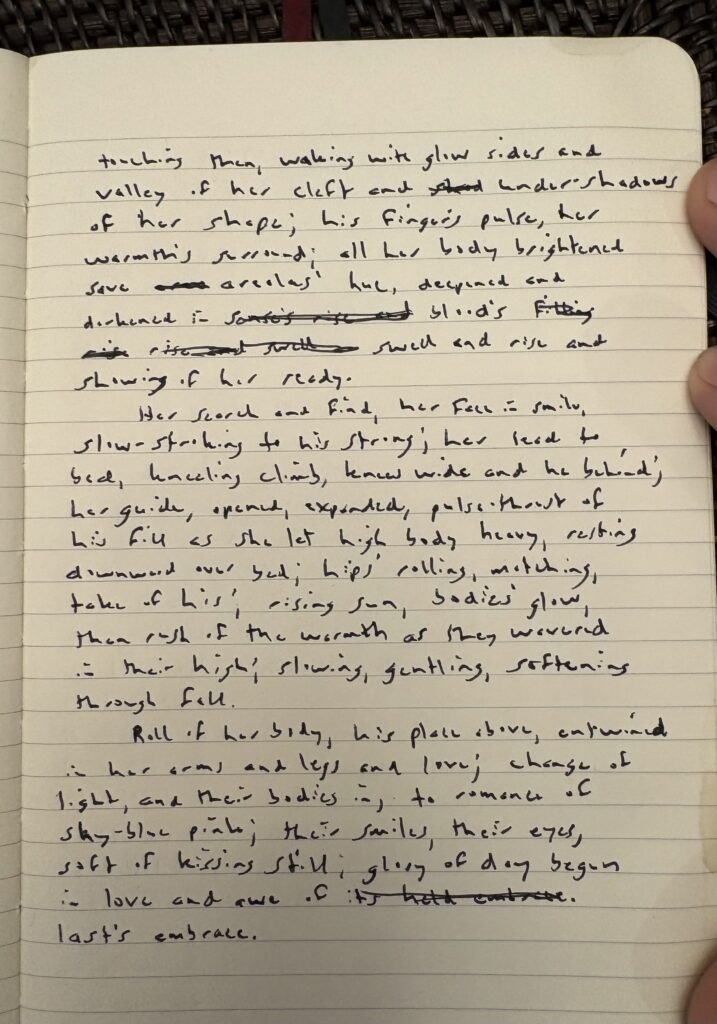 touching them, waking with glow sides and
valley of her cleft and under-shadows
of her shape; his fingers pulse, her
warmth's surround; all her body brightened
save areolas' hue, deepened and
darkened in blood's
swell and rise and
showing of her ready.
Her search and find, her face in smile,
slow-stroking to his strong; her lead to
bed, kneeling climb, knees wide and he behind;
her guide, opened, expanded, pulse-thrust of
his fill as she let high body heavy, resting
downward over bed; hips' rolling, matching,
take of his; rising sun, bodies' glow,
then rush of the warmth as they wavered
in their high; slowing, gentling, softening
through fall.
Roll of her body, his place above, entwined
in her arms and legs and love; change of
light, and their bodies in, to romance of
sky-blue pink; their smiles, their eyes,
soft of kissing still; glory of day begun
in love and awe of its held embrace.
last's embrace.